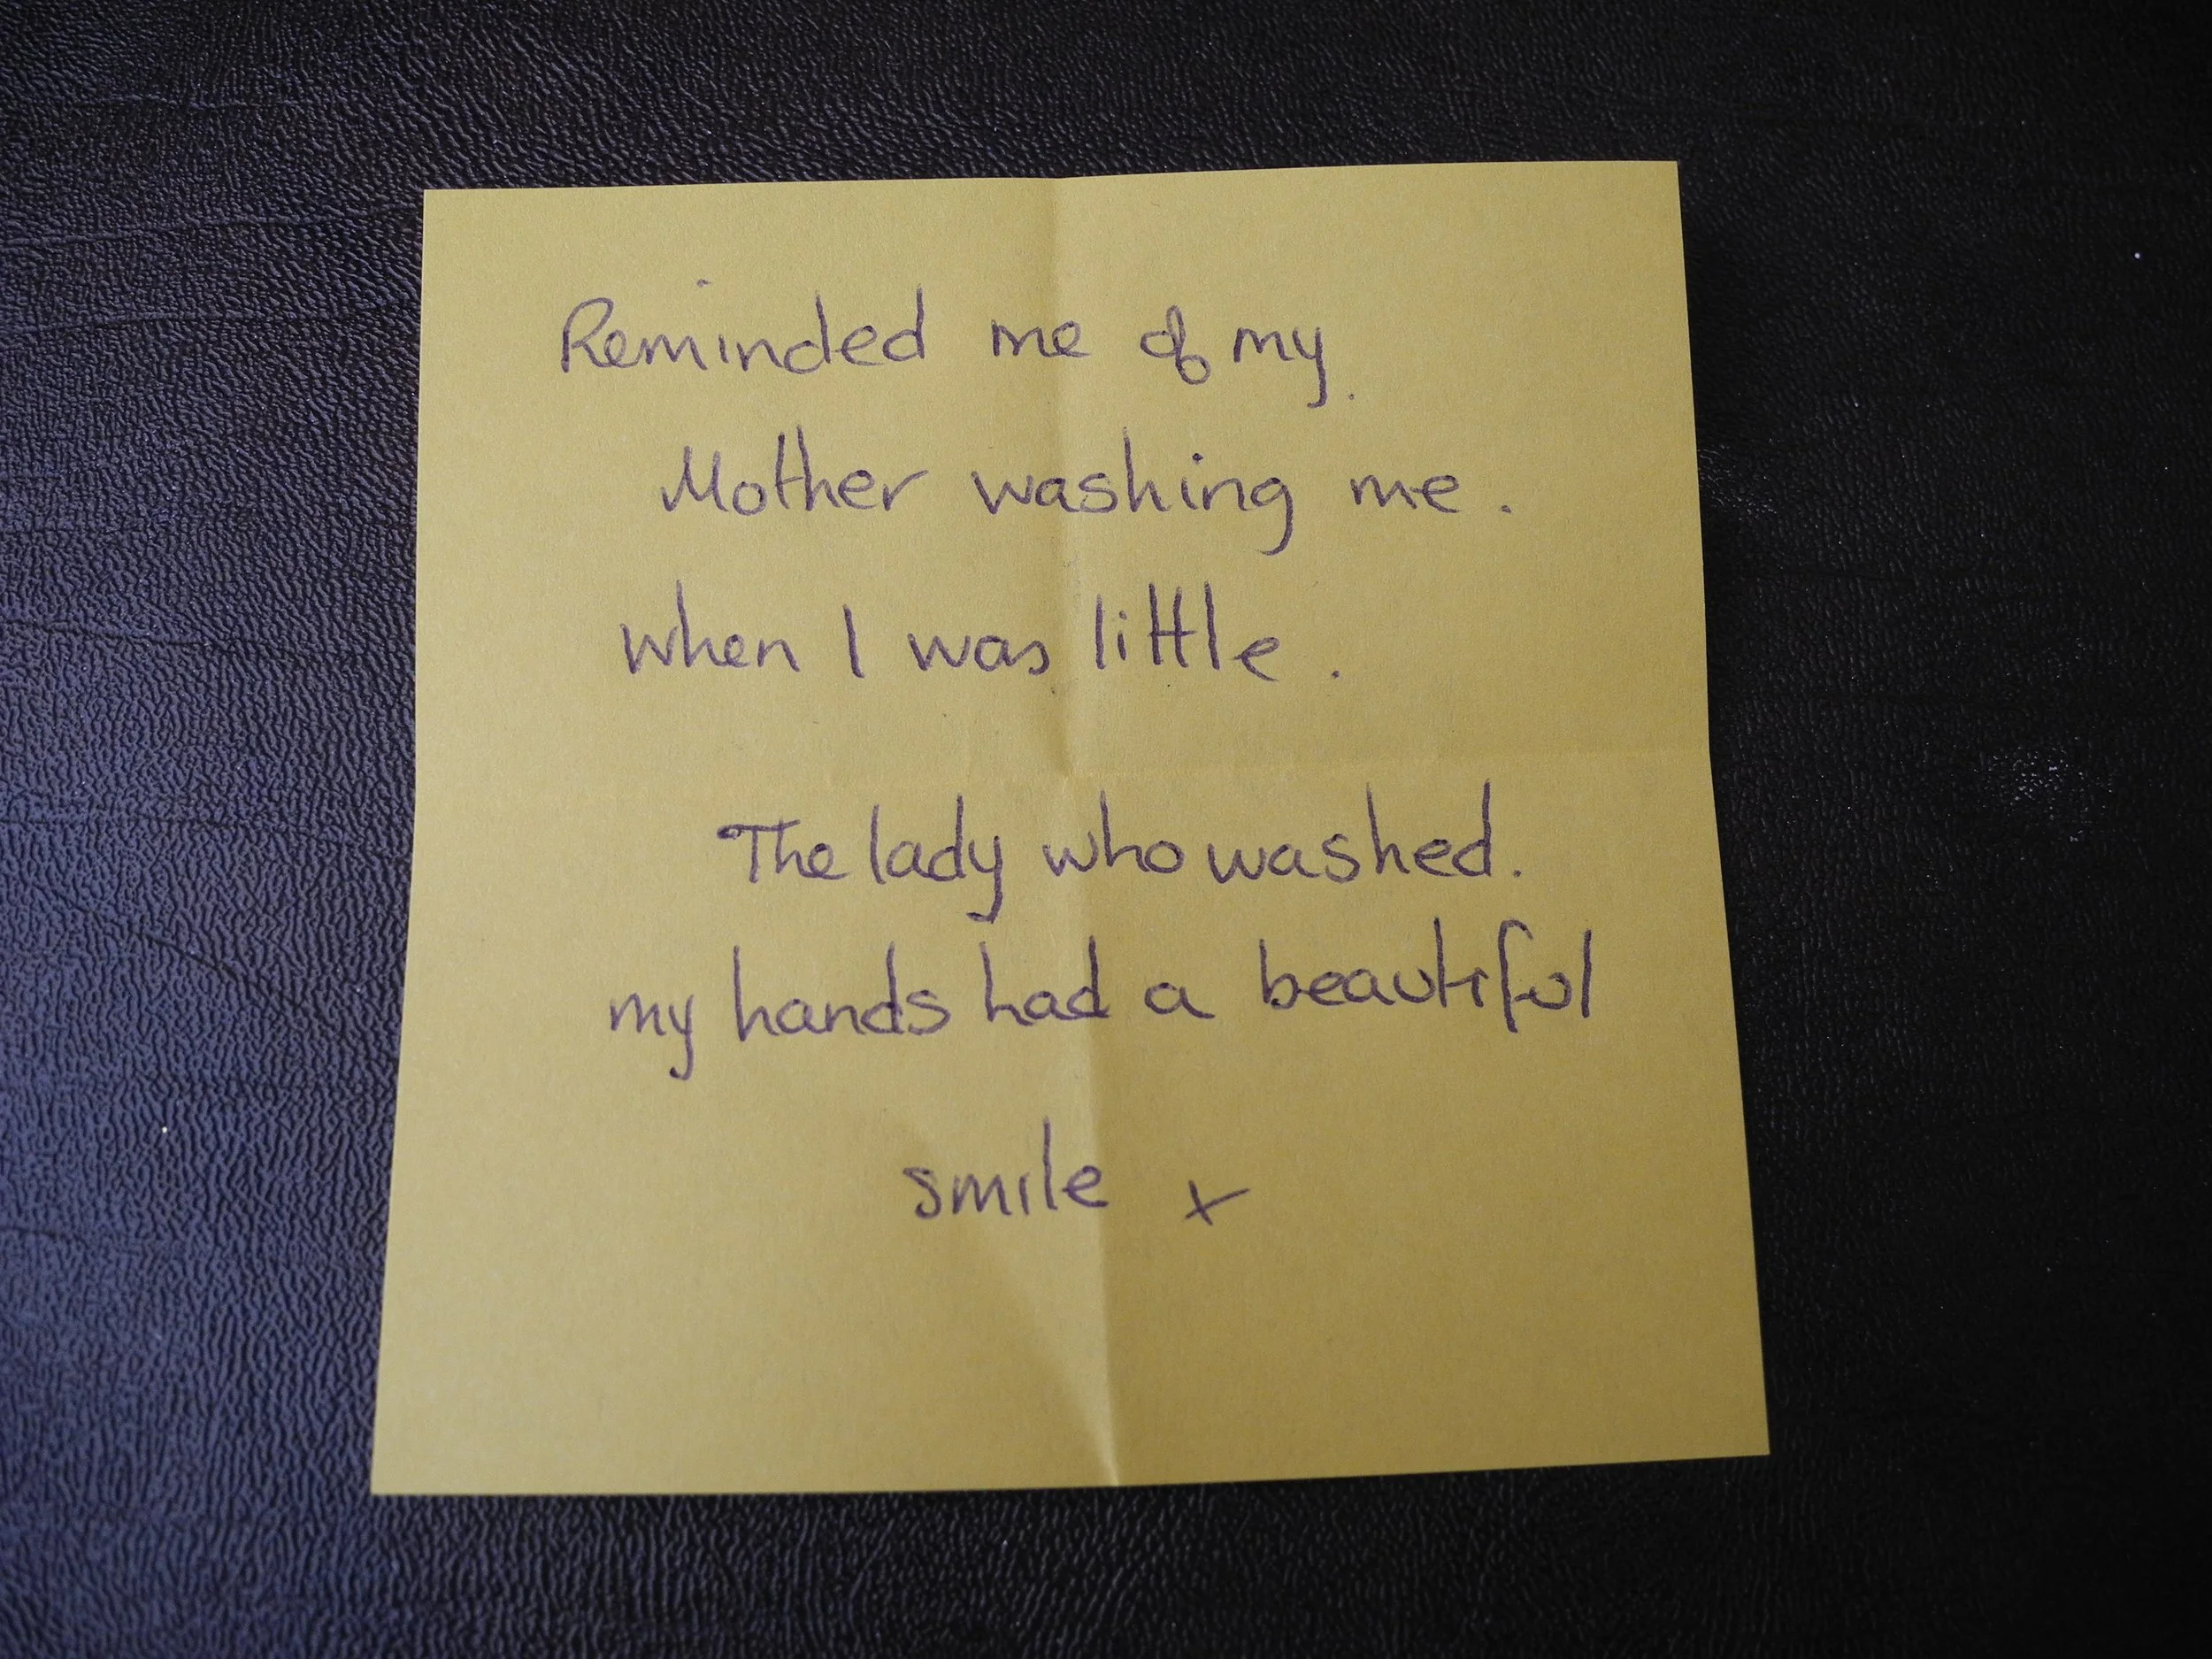 Reminded me of my.
Mother washing me.
when I was little.
The lady who washed.
my hands had a beautiful
smile x